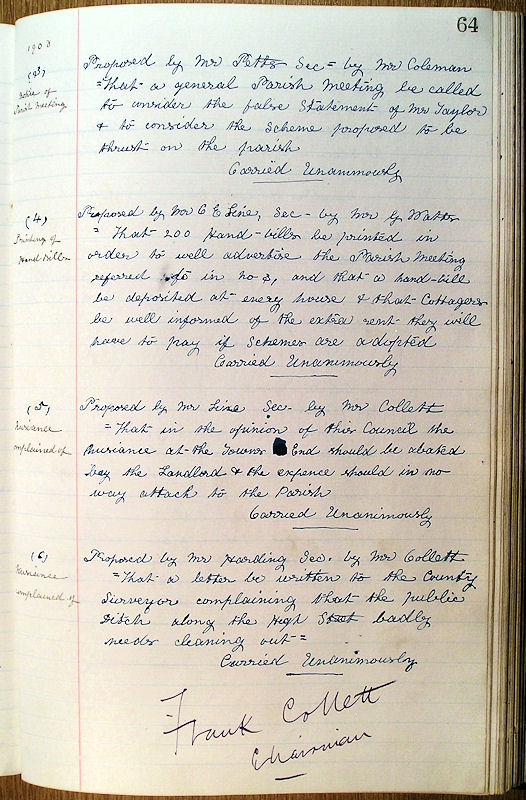 64
1908
(3)
Notice of
Parish Meeting
Proposed by Mr Petts Sec- by Mr Coleman
"That a general Parish Meeting be called
to consider the false Statement of Mr Taylor
& to consider the Scheme proposed to be
thrust on the parish
Carried Unanimously
(4)
Printing of
Hand Bills
Proposed by Mr C E Line, Sec- by Mr G Watts
"That 200 Hand-bills be printed in
order to well advertise the Parish Meeting
referred to in No 3, and that a hand-bill
be deposited at every house & that Cottagers
be well informed of the extra rent they will
have to pay if Schemes are adopted
Carried Unanimously
(5)
Nusiance
complained of
Proposed by Mr Line Sec- by Mr Collett
"That in the opinion of this Council the
Nusiance at the Towns End should be abated
by the Landlord & the expence should in no
way attach to the Parish
Carried Unanimously
(6)
Nusiance
complained of
Proposed by Mr Harding Sec. by Mr Collett
"That a letter be written to the County
Surveyor complaining that the public
Ditch along the High Street badly
needs cleaning out"
Carried Unanimously
Frank Collett
Chairman